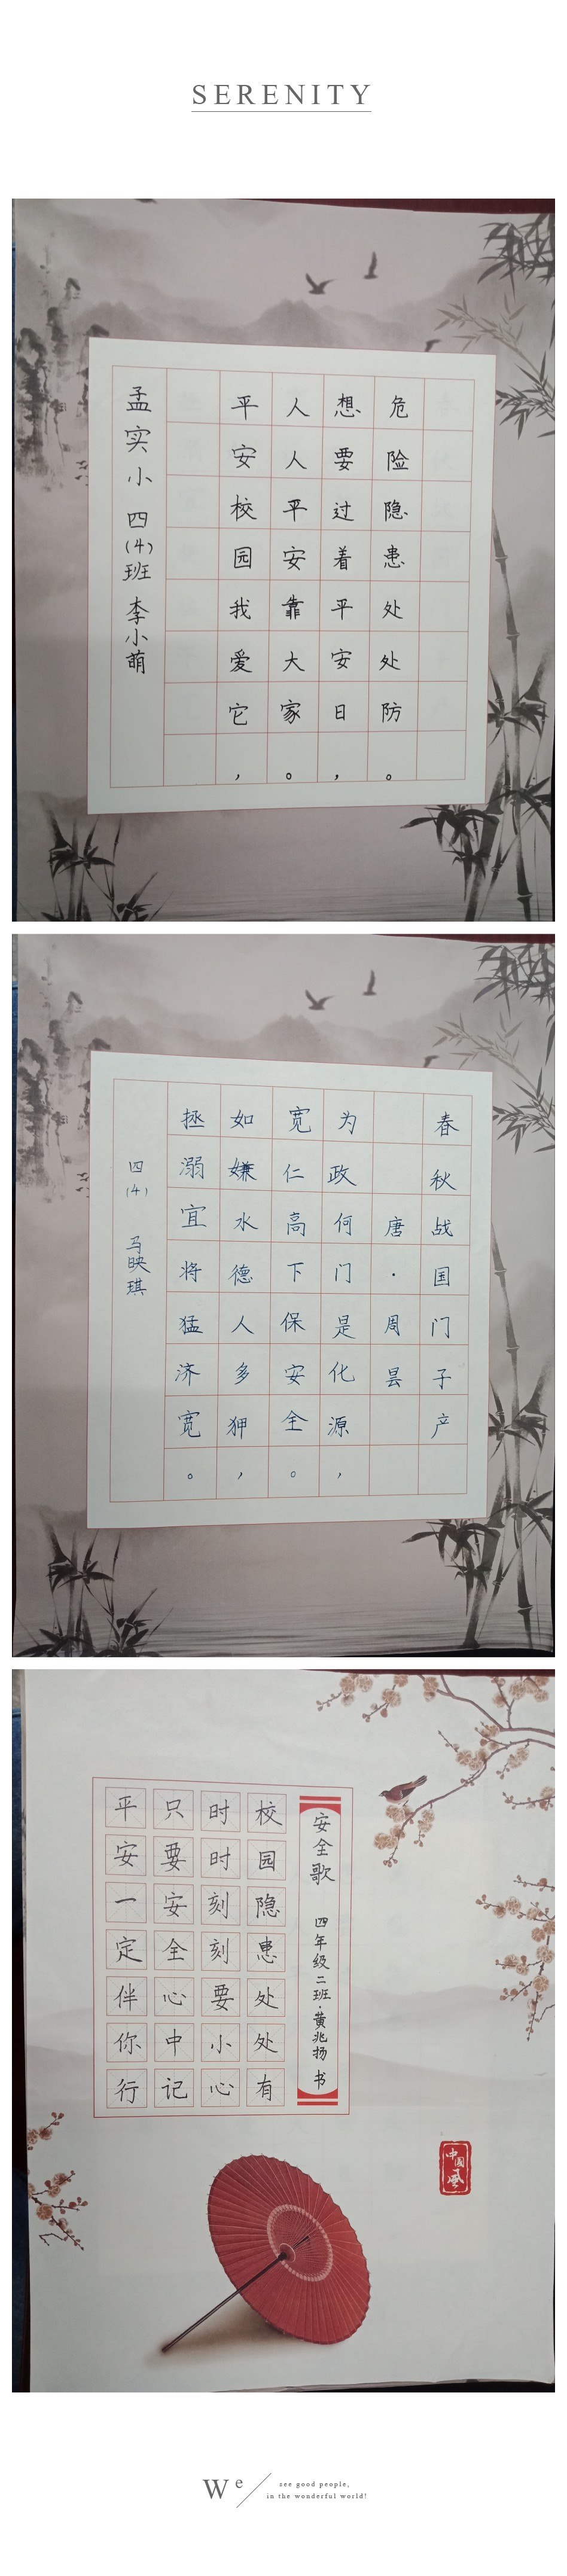 SERENITY
危险隐患处处防。
想要过着平安日,
人人平安靠大家。
平安校园我爱它,
孟实小 四(4)班 李小萌
春秋战国门子产
唐·周昙
为政何门是化源,
宽仁高下保安全。
如嫌水德人多狎,
拯溺宜将猛济宽。
四(4) 马映琪
安全歌 四年级二班·黄兆扬 书
校园隐患处处有
时时刻刻要小心
只要安全心中记
平安一定伴你行
中國風
We
see good people,
in the wonderful world!